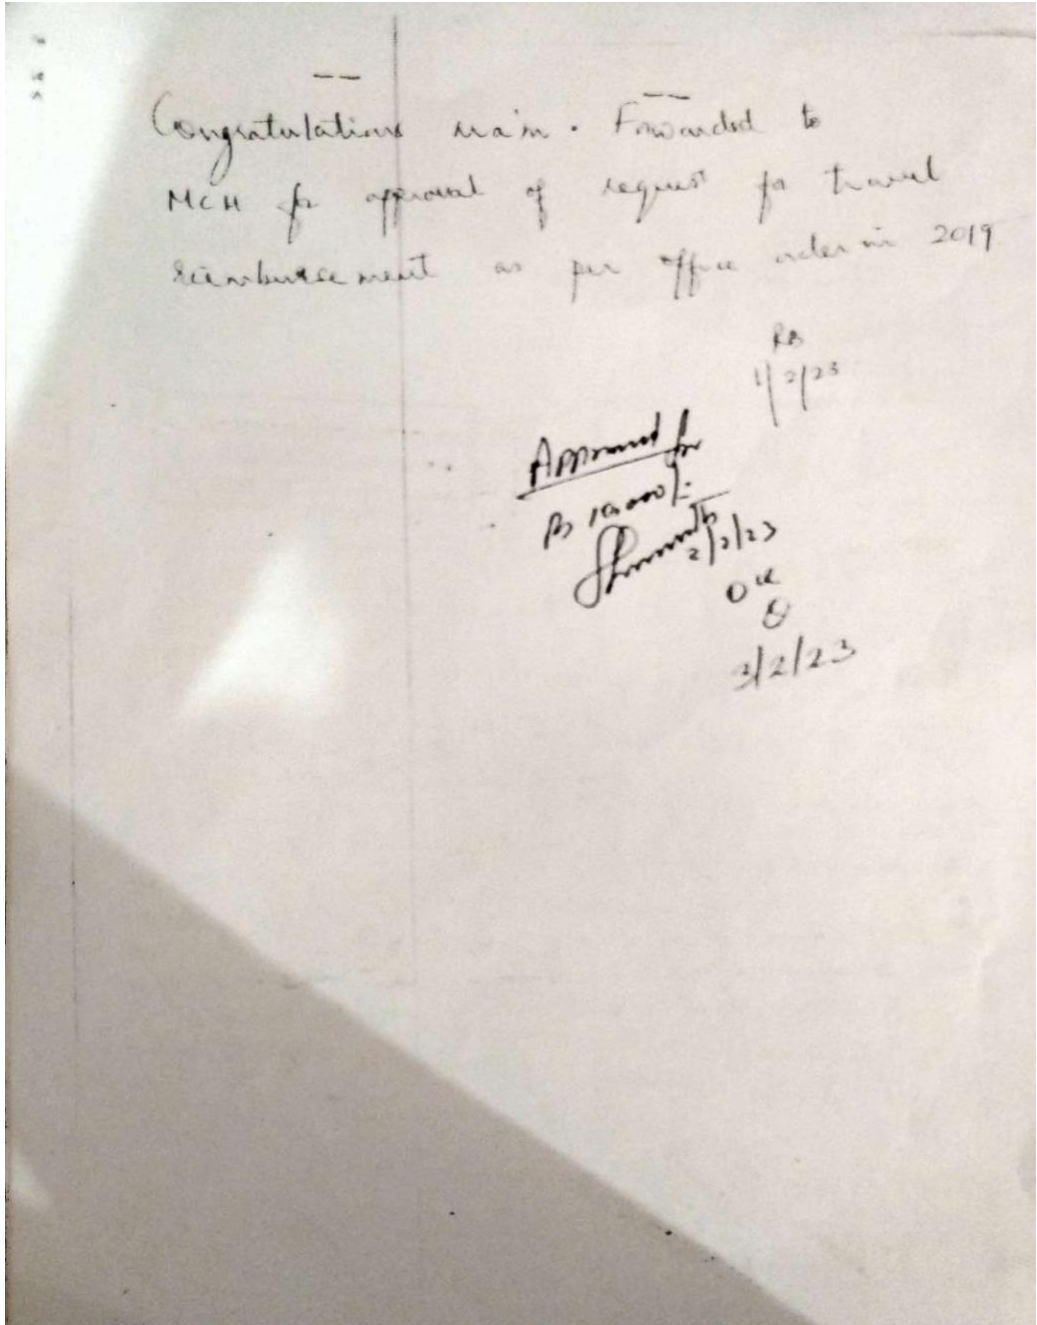 Congratulations ma'm. Forwarded to
MCH for approval of request for travel
reimbursement as per office order in 2019
RB
1/2/23
Approved for
Rs 10,000/-
2/2/23
OK
3/2/23